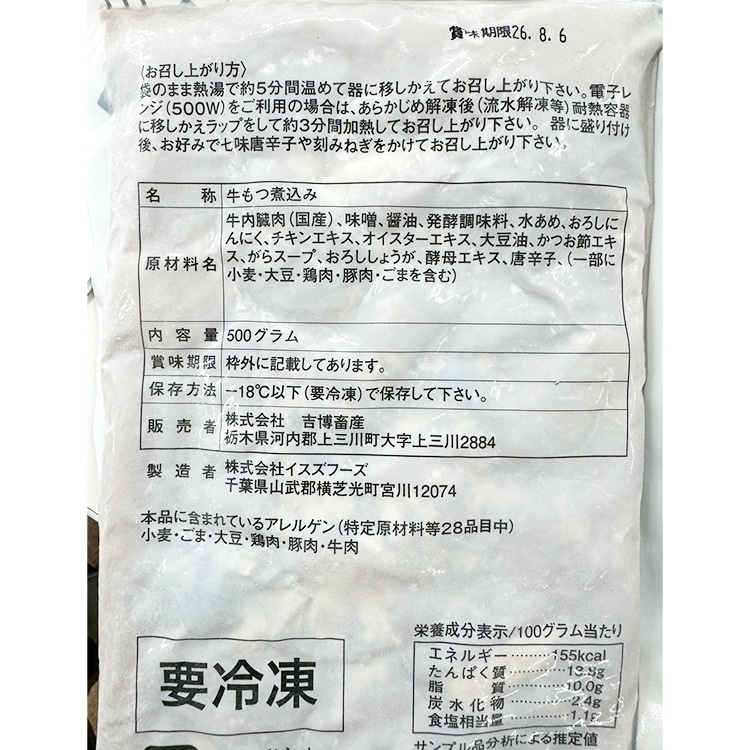 賞味期限26.8.6
〈お召し上がり方〉
袋のまま熱湯で約5分間温めて器に移しかえてお召し上がり下さい。電子レ
ンジ(500W)をご利用の場合は、あらかじめ解凍後(流水解凍等)耐熱容器
に移しかえラップをして約3分間加熱してお召し上がり下さい。 器に盛り付け
後、お好みで七味唐辛子や刻みねぎをかけてお召し上がり下さい。
名称 牛もつ煮込み
原材料名 牛内臓肉(国産)、味噌、醤油、発酵調味料、水あめ、おろしに
んにく、チキンエキス、オイスターエキス、大豆油、かつお節エキ
ス、がらスープ、おろししょうが、酵母エキス、唐辛子、(一部に
小麦・大豆・鶏肉・豚肉・ごまを含む)
内容量 500グラム
賞味期限 枠外に記載してあります。
保存方法 -18℃以下(要冷凍)で保存して下さい。
販売者 株式会社 吉博畜産
栃木県河内郡上三川町大字上三川2884
製造者 株式会社イスズフーズ
千葉県山武郡横芝光町宮川12074
本品に含まれているアレルゲン(特定原材料等28品目中)
小麦・ごま・大豆・鶏肉・豚肉・牛肉
要冷凍
栄養成分表示/100グラム当たり
エネルギー 155kcal
たんぱく質 13.8g
脂質 10.0g
炭水化物 2.4g
食塩相当量 1.1g
サンプル品分析による推定値